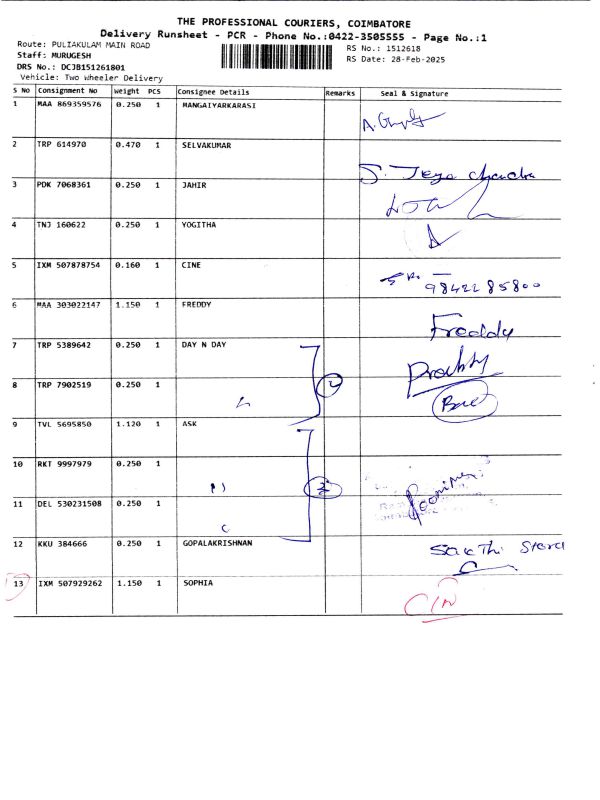 THE PROFESSIONAL COURIERS, COIMBATORE
Delivery Runsheet - PCR - Phone No.:0422-3505555 - Page No.:1
Route: PULIAKULAM MAIN ROAD
RS No.: 1512618
Staff: MURUGESH
RS Date: 28-Feb-2025
DRS No.: DCJB151261801
Vehicle: Two Wheeler Delivery
S No Consignment No Weight PCS Consignee Details Remarks Seal & Signature
1 MAA 869359576 0.250 1 MANGAIYARKARASI
2 TRP 614970 0.470 1 SELVAKUMAR
S. Jeya chandra
3 PDK 7068361 0.250 1 JAHIR
4 TNJ 160622 0.250 1 YOGITHA
5 IXM 507878754 0.160 1 CINE
9842285800
6 MAA 303022147 1.150 1 FREDDY
Freddy
7 TRP 5389642 0.250 1 DAY N DAY
8 TRP 7902519 0.250 1
9 TVL 5695850 1.120 1 ASK
10 RKT 9997979 0.250 1
11 DEL 530231508 0.250 1
12 KKU 384666 0.250 1 GOPALAKRISHNAN
Sakthi Store
13 IXM 507929262 1.150 1 SOPHIA